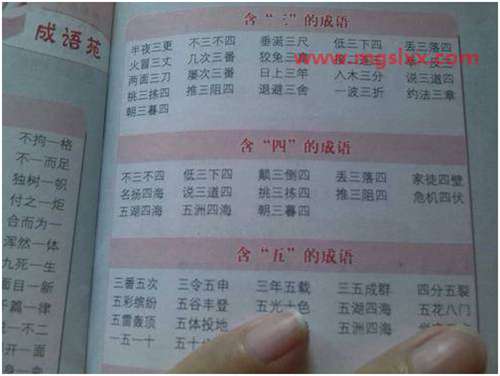 成语苑
不拘一格
不一而足
独树一帜
付之一炬
合而为一
浑然一体
九死一生
面目一新
千篇一律
一不二
开一面
含“三”的成语
半夜三更 不三不四 垂涎三尺 低三下四 丢三落四
火冒三丈 几次三番 狡兔三
www.mgslxx.com
两面三刀 屡次三番 日上三竿 入木三分 说三道四
挑三拣四 推三阻四 退避三舍 一波三折 约法三章
朝三暮四
含“四”的成语
不三不四 低三下四 颠三倒四 丢三落四 家徒四壁
名扬四海 说三道四 挑三拣四 推三阻四 危机四伏
五湖四海 五洲四海 朝三暮四
含“五”的成语
三番五次 三令五申 三年五载 三五成群 四分五裂
五彩缤纷 五谷丰登 五光十色 五湖四海 五花八门
五雷轰顶 五体投地 五洲四海
一五一十 五十